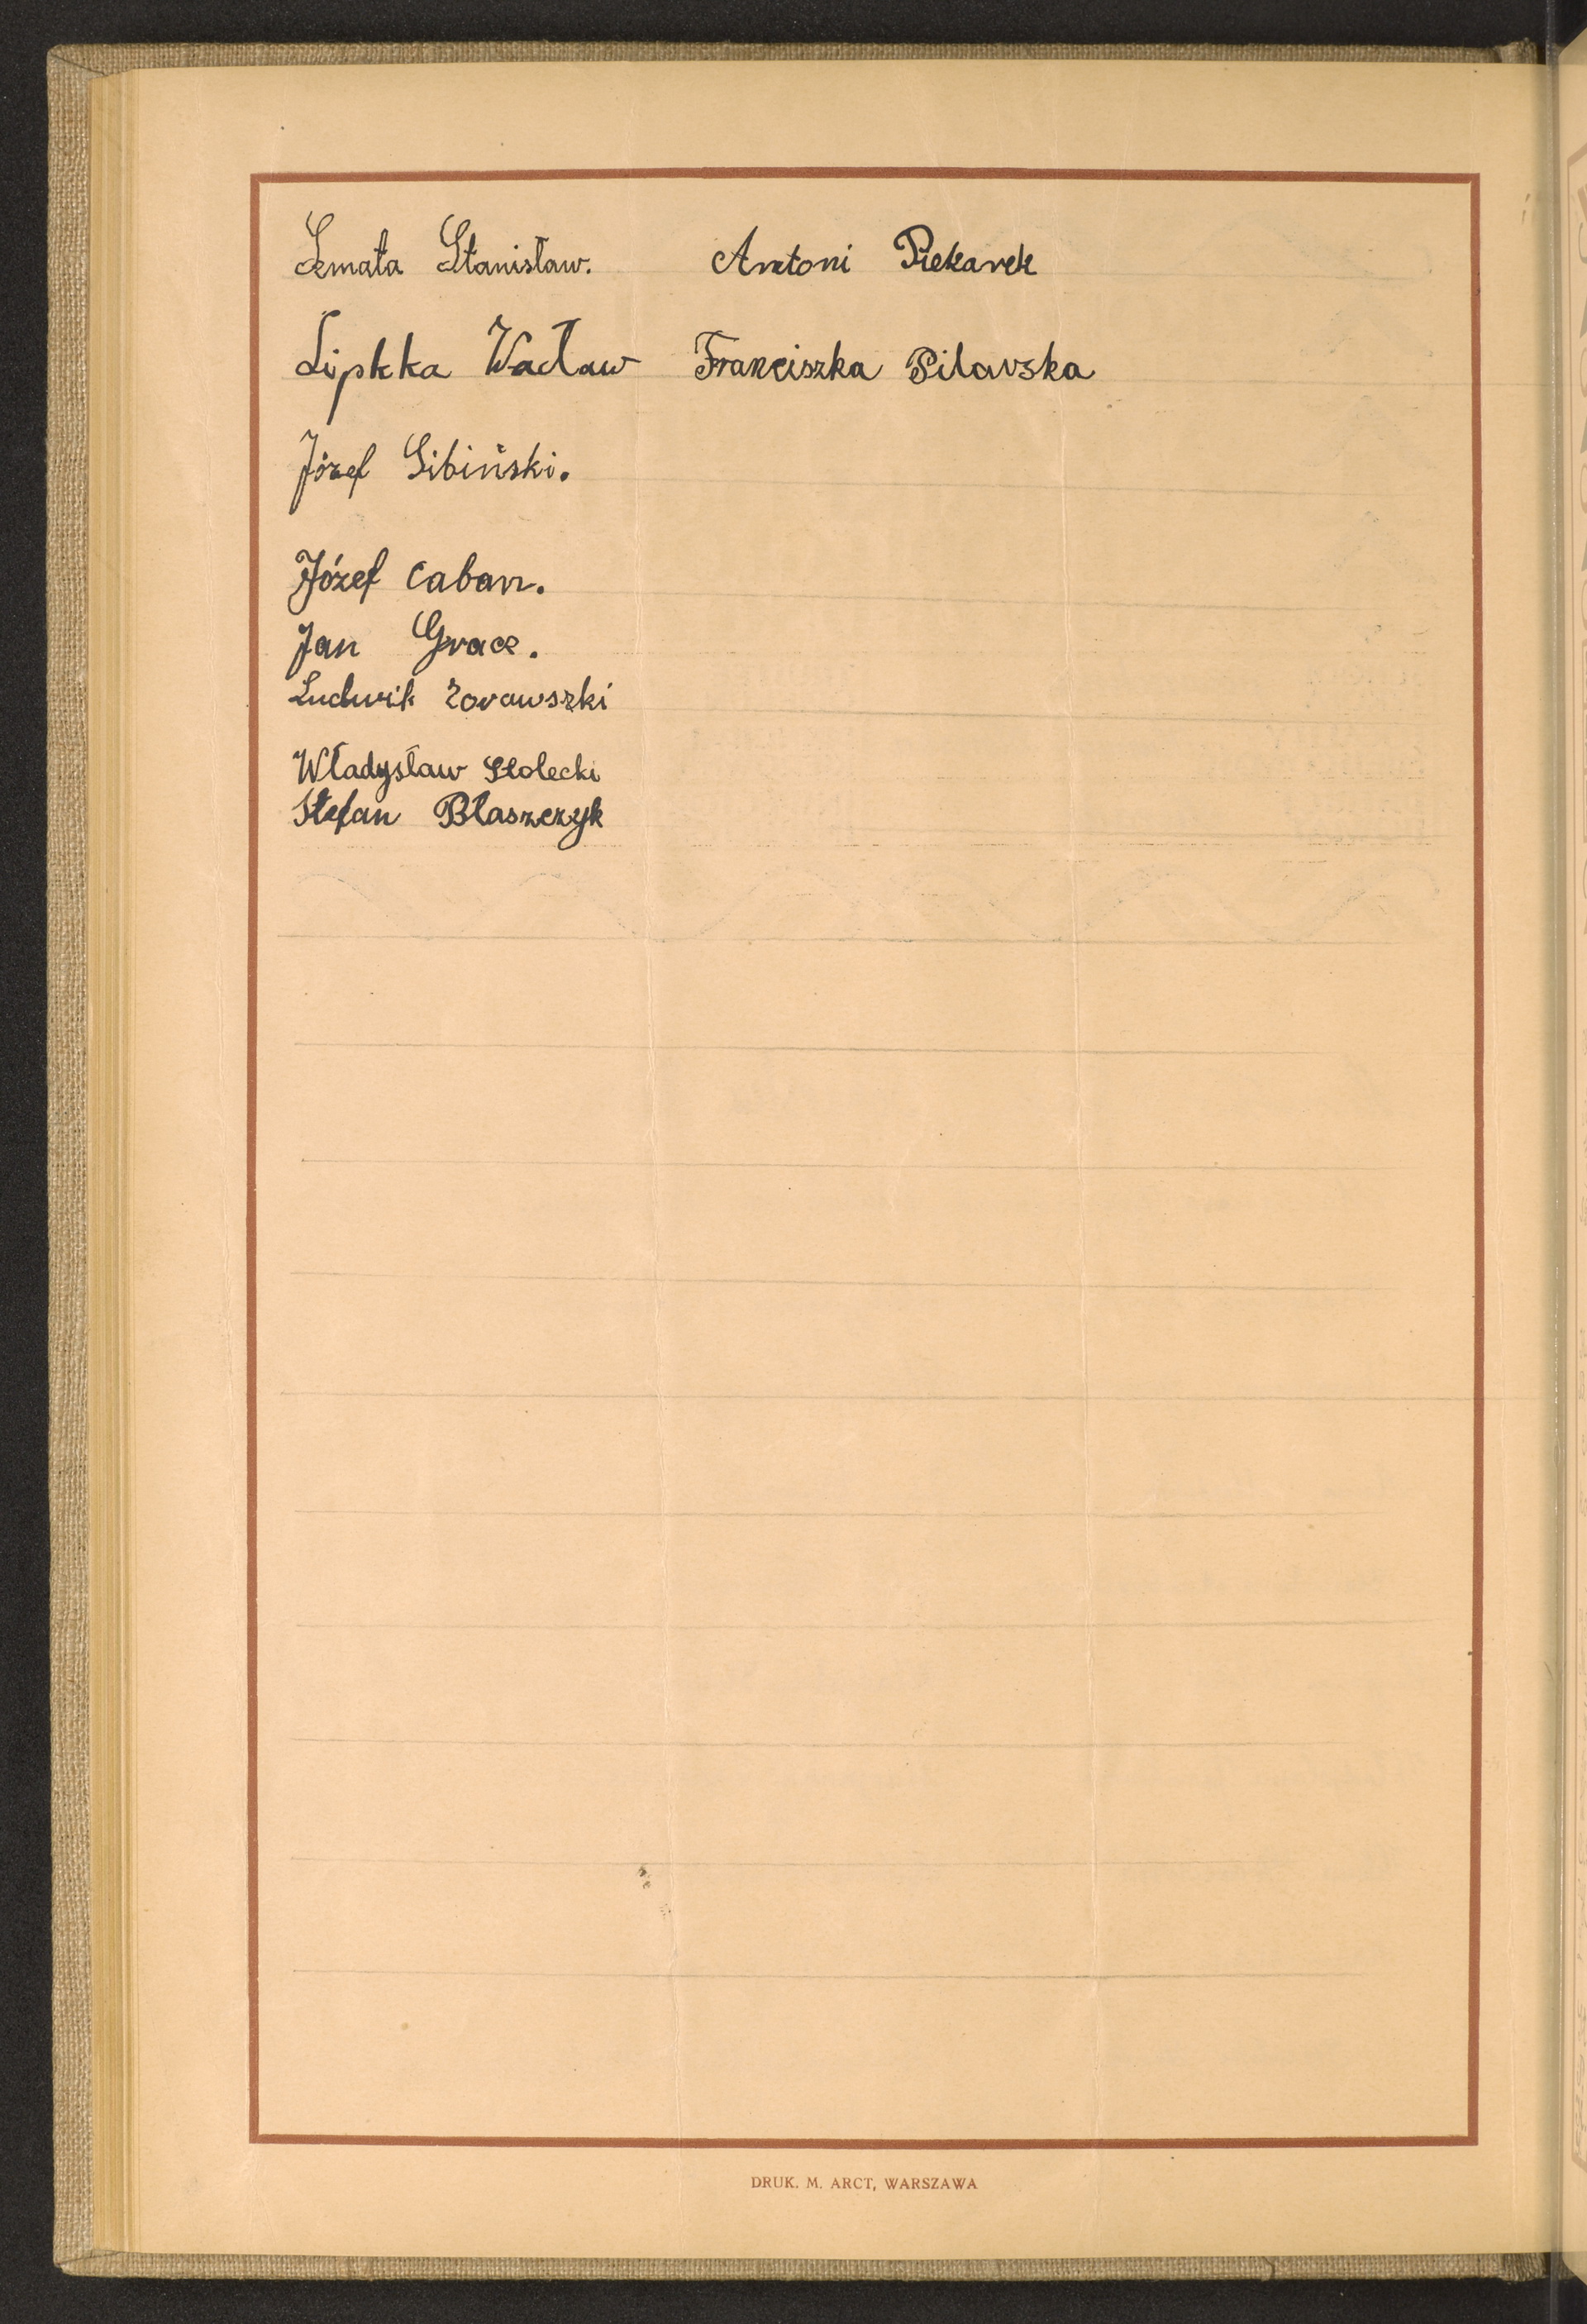 Semata Stanisław. Antoni Piekarek
Lipkka Wacław Franciszka Pilarska
Józef Sibiński.
Józef Caban.
Jan Grace.
Ludwik Zorawszki
Władysław Stolecki
Stefan Błaszczyk
DRUK. M. ARCT, WARSZAWA